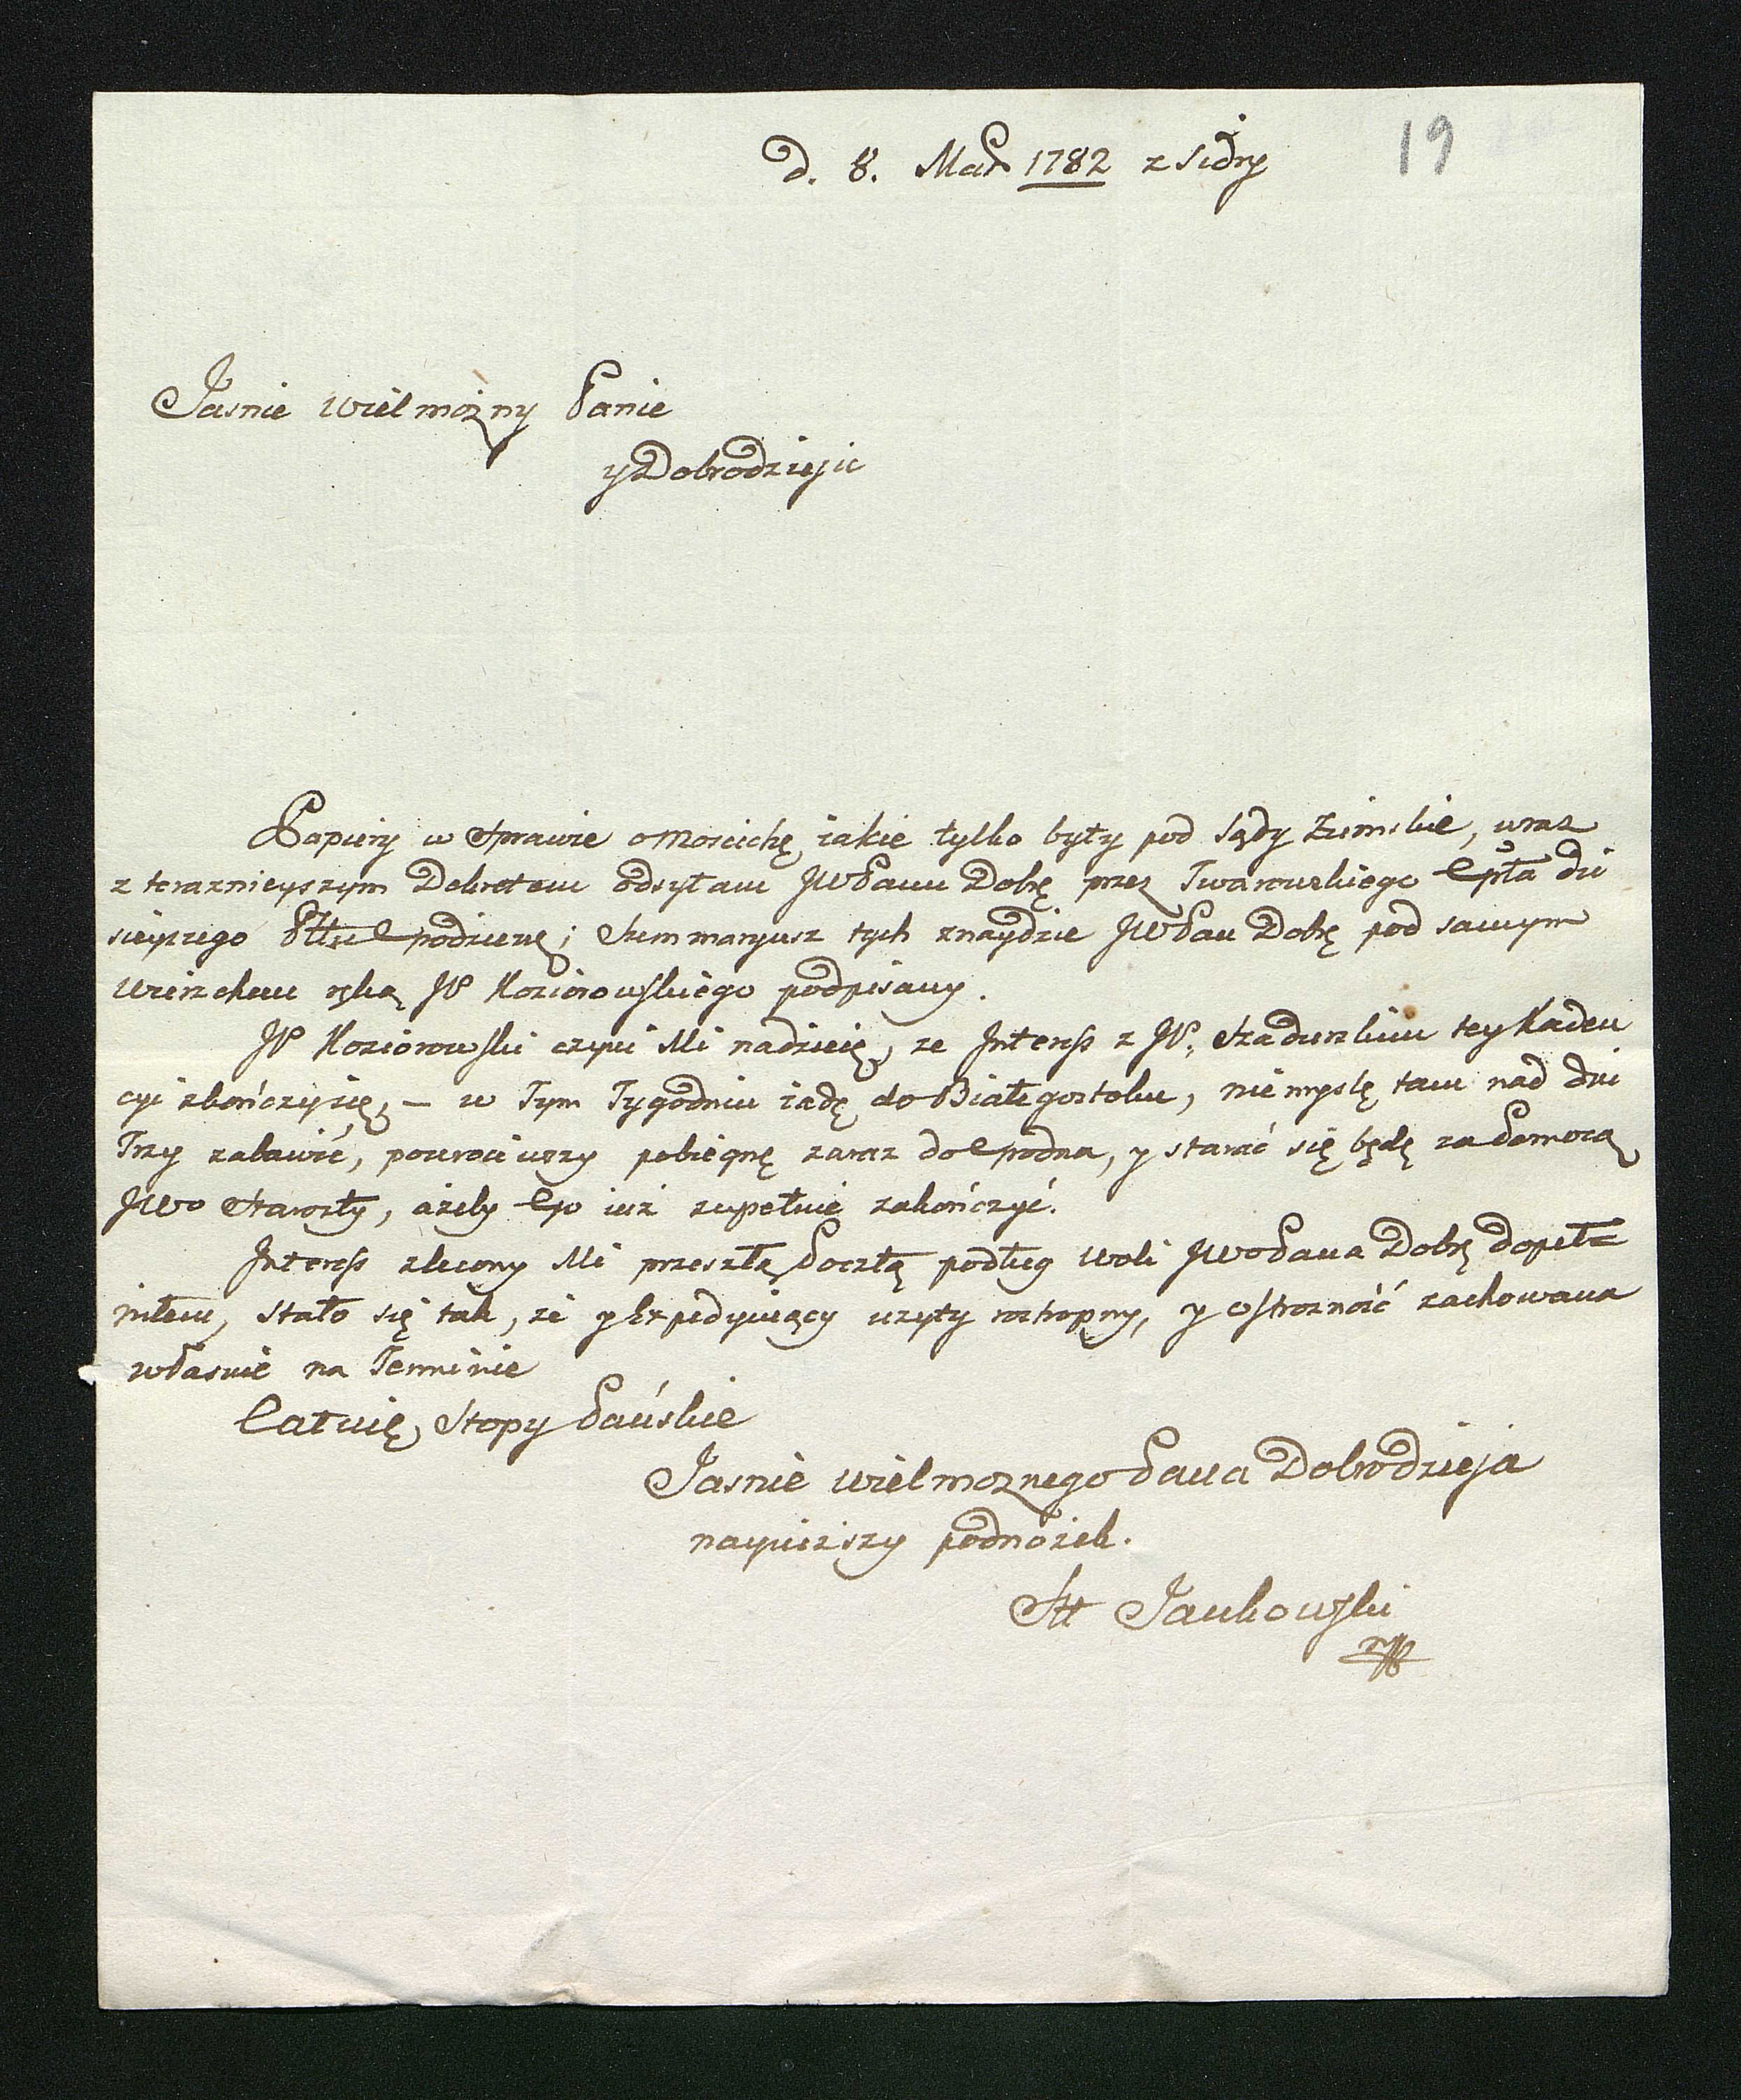 19
d. 8. Mar 1782 z Sidry
Jasnie wielmożny Panie
y Dobrodzieju
Papiery w Sprawie o Moscichę iakie tylko były pod Sądy Ziemskie, wraz
z teraznieyszym Dekretem odsyłam JWPanu Dobr przez Twarowskiego
sieyszego; Summaryusz tych znaydzie JWPan Dobr pod samym
wierzchem ręką JP Koziorowskiego podpisany.
JP Koziorowski czyni Mi nadzieię, ze Interess z JP. Szadurskim tey Kaden
cyi zkończy się, – w Tym Tygodniu iadę do Białegostoku, nie myslę tam nad dni
Trzy zabawić, powrociwszy pobiegnę zaraz do Grodna, y starać się będę za Pomocą
JWo Starosty, ażeby Go iuż zupełnie zakończyć.
Interess zlecony Mi przeszłą Pocztą podług woli JWoPana Dobr dopeł=
niłem, stało się tak, że y Expedyuiący uzyty roztropny, y Ostrozność zachowana
własnie na Terminie
Całuię Stopy Pańskie
Jasnie wielmoznego Pana Dobrodzieja
nayniższy podnożek.
Jankowski
mp